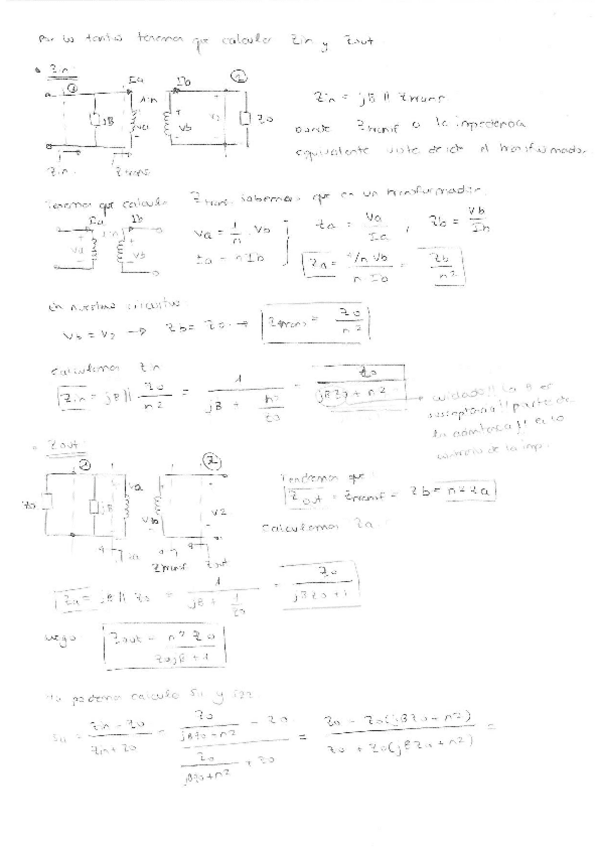 Por lo tanto tenemos que calcular Zin y Zout
• Zin:
① Ia 1:n Ib ②
jB Va Vb V2 Z0
Zin Ztrans
Zin = jB || Ztransf
donde Ztransf es la impedancia
equivalente vista desde el transformador
Tenemos que calcular Ztrans. Sabemos que en un transformador:
Ia Ib
Va 1:n Vb
Va = 1/n · Vb
Ia = n Ib
Za = Va/Ia , Zb = Vb/Ib
Za = (1/n Vb)/(n · Ib) = Zb/n²
en nuestro circuito:
Vb = V2 → Zb = Z0 → Ztrans = Z0/n²
Calculamos Zin
Zin = jB || Z0/n² = 1/(jB + n²/Z0) = Z0/(jBZ0 + n²)
cuidado!! la B es
susceptancia!! parte de
la admitancia!! es lo
contrario de la imp.
• Zout:
① ②
Z0 jB Va Vb V2
Za Ztransf Zout
Tendremos que:
Zout = Ztransf = Zb = n² Za
Calculamos Za:
Za = jB || Z0 = 1/(jB + 1/Z0) = Z0/(jBZ0 + 1)
luego: Zout = n² Z0/(Z0jB + 1)
Ya podemos calcular S11 y S22:
S11 = (Zin - Z0)/(Zin + Z0) = (Z0/(jBZ0 + n²) - Z0)/(Z0/(jBZ0 + n²) + Z0) = (Z0 - Z0(jBZ0 + n²))/(Z0 + Z0(jBZ0 + n²)) =